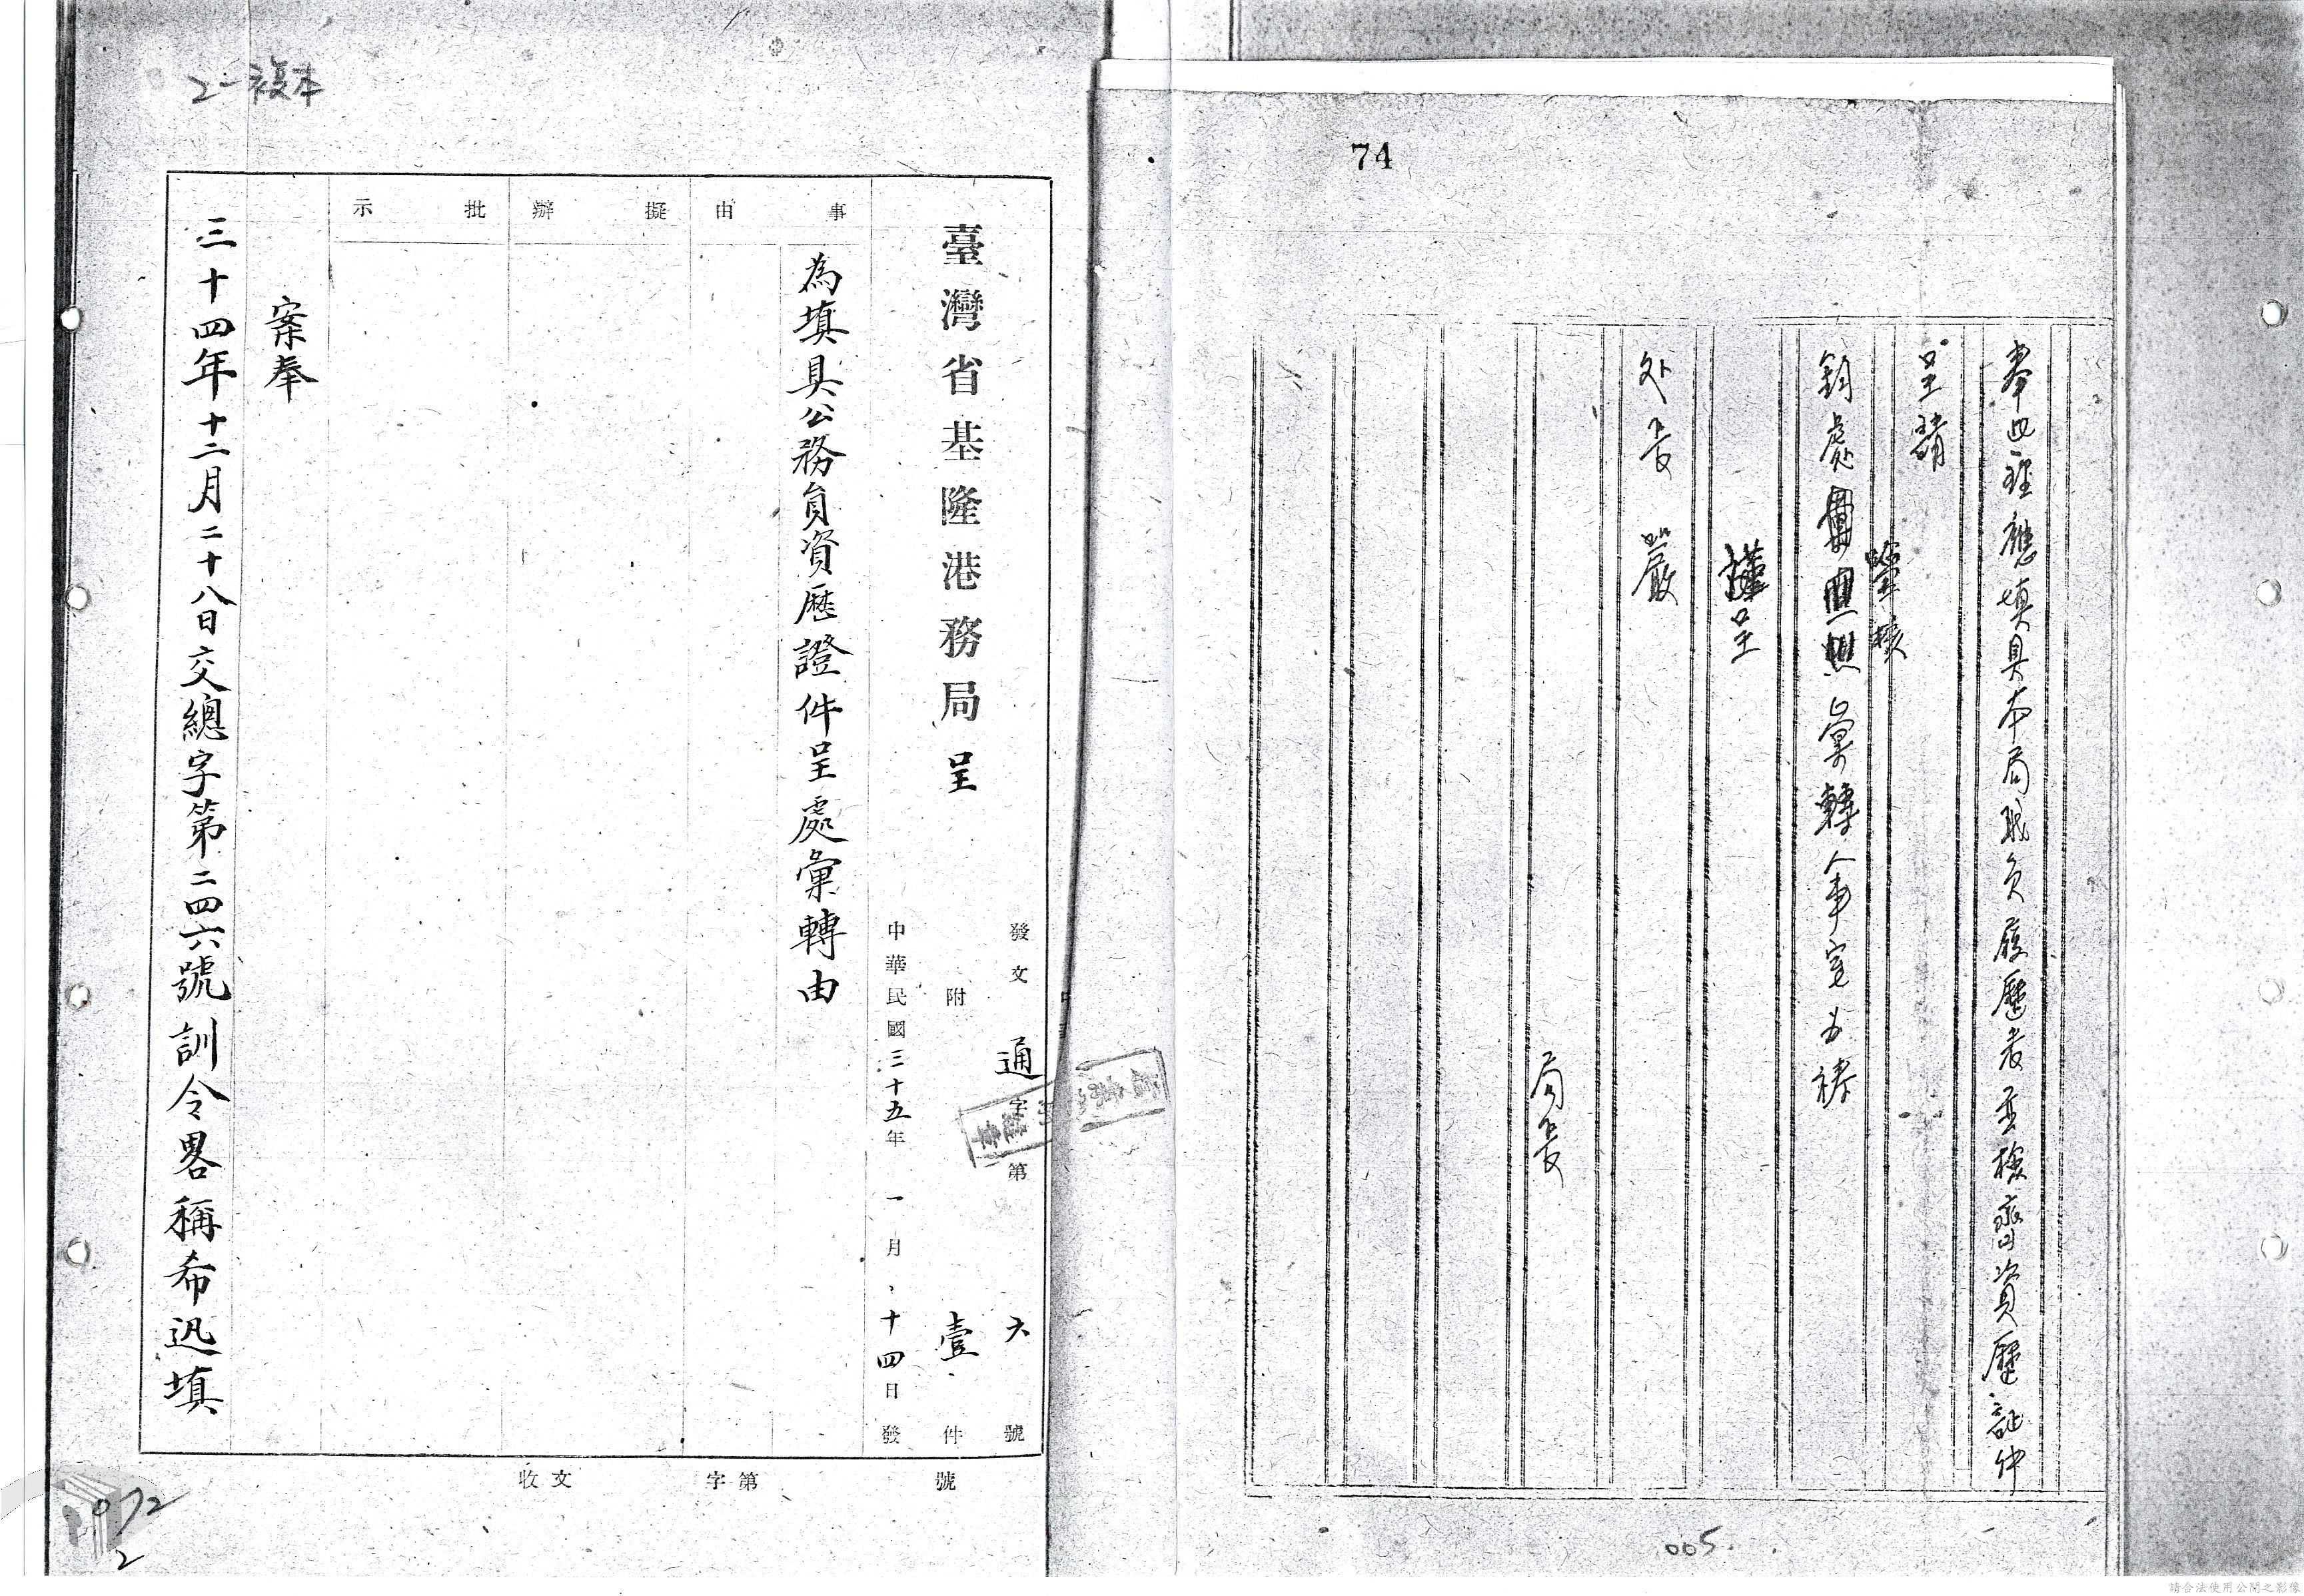 74
奉此理應填具本局職員履歷表並檢齊資歷証件
呈請
鑒核
鈞處彙轉人事室為禱
謹呈
处長 嚴
局長
005
2-複本
臺灣省基隆港務局呈
發文 通字第 六號
附 壹件
中華民國三十五年 一月十四日發
事由
為填具公務員資歷證件呈處彙轉由
擬辦
批示
案奉
三十四年十二月二十八日交總字第二四六號訓令畧稱希迅填
收文 字第 號
072
2
請合法使用公開之影像